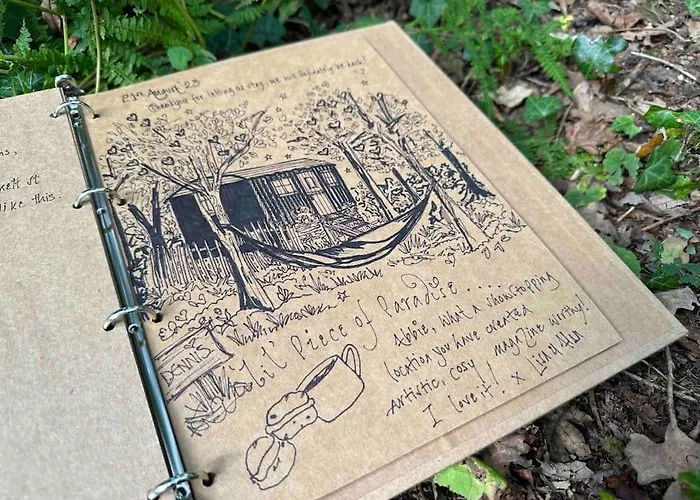 ns,
kett st
like this.
21st August 23
Thankyou for letting us stay, we will definately be back!
'a lil' Piece of Paradise ....
DENNIS
Abbie, what a showstopping
location you have created
Artistic, cosy magazine worthy!
I love it! x